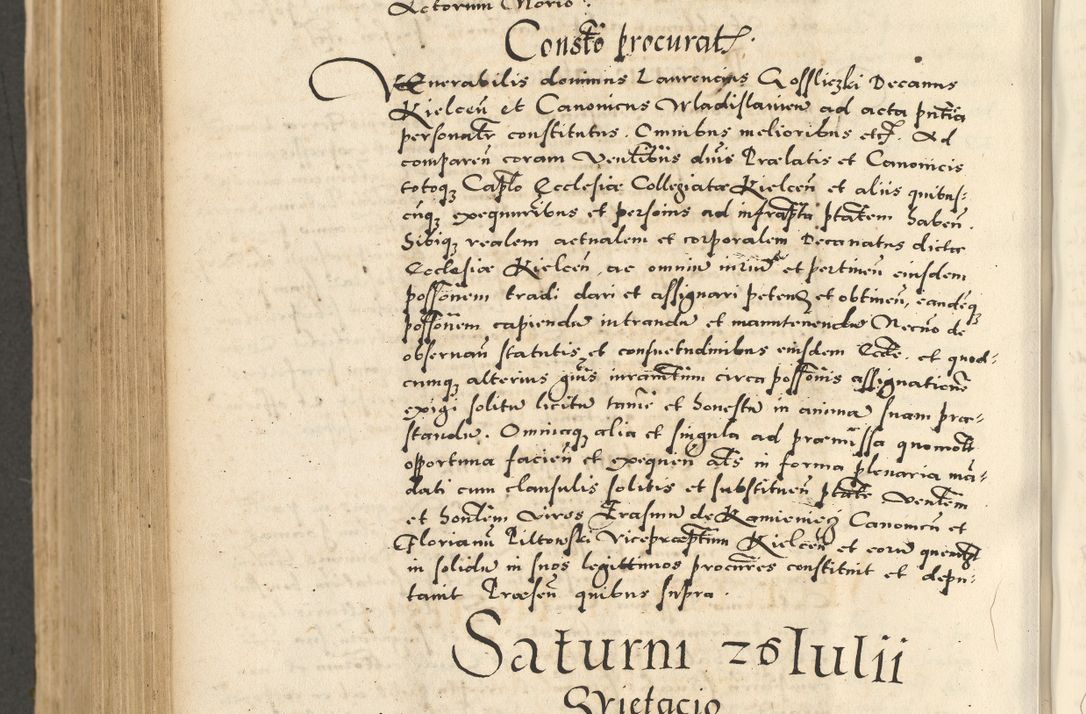 Actorum Notario.
Constō procurat.
VEnerabilis dominus Laurencius Gosliczki Decanus
Kielceñ et Canonicus Wladislavieñ ad acta pñtia
personalr̃ constitutus. Omnibus melioribus etc. Ad
compareñ coram Venlibus dñis Prælatis et Canonicis
totoq; Caplo Ecclesiæ Collegiatæ Kielceñ et aliis quibus-
cũq; exequutoribus et personis ad infrapta ptatem habeñ.
Sibiq; realem actualem et corporalem Decanatus dictæ
Ecclesiæ Kielceñ, ac omniũ iuriũ et pertineñ eiusdem
possōnem tradi dari et assignari peteñ et obtineñ, eandẽq;
possōnem capiendũ intrandũ et manutenendũ Necnō de
observañ statutis et consuetudinibus eiusdem Eccłe, et quod-
cumq; alterius gñis iuramtum circa possōnis assignationẽ
exigi solitũ licitũ tamẽ et honestũ in animã suam præ-
standũ. Omniaq; alia et singula ad præmissa quomłt
opportuna facieñ et exequeñ Ats in forma plenaria mã-
dati cum clausulis solitis et substitueñ ptate Venłem
et honłem viros Erasmũ de Kamieniecz Canonicũ et
Florianũ Piltowski Vicepræptum Kielceñ et eorũ quemłt
in solidũ in suos legittimos procurẽs constituit et depu-
tavit Præseñ quibus supra.
Saturni 26 Iulii
Svietacio